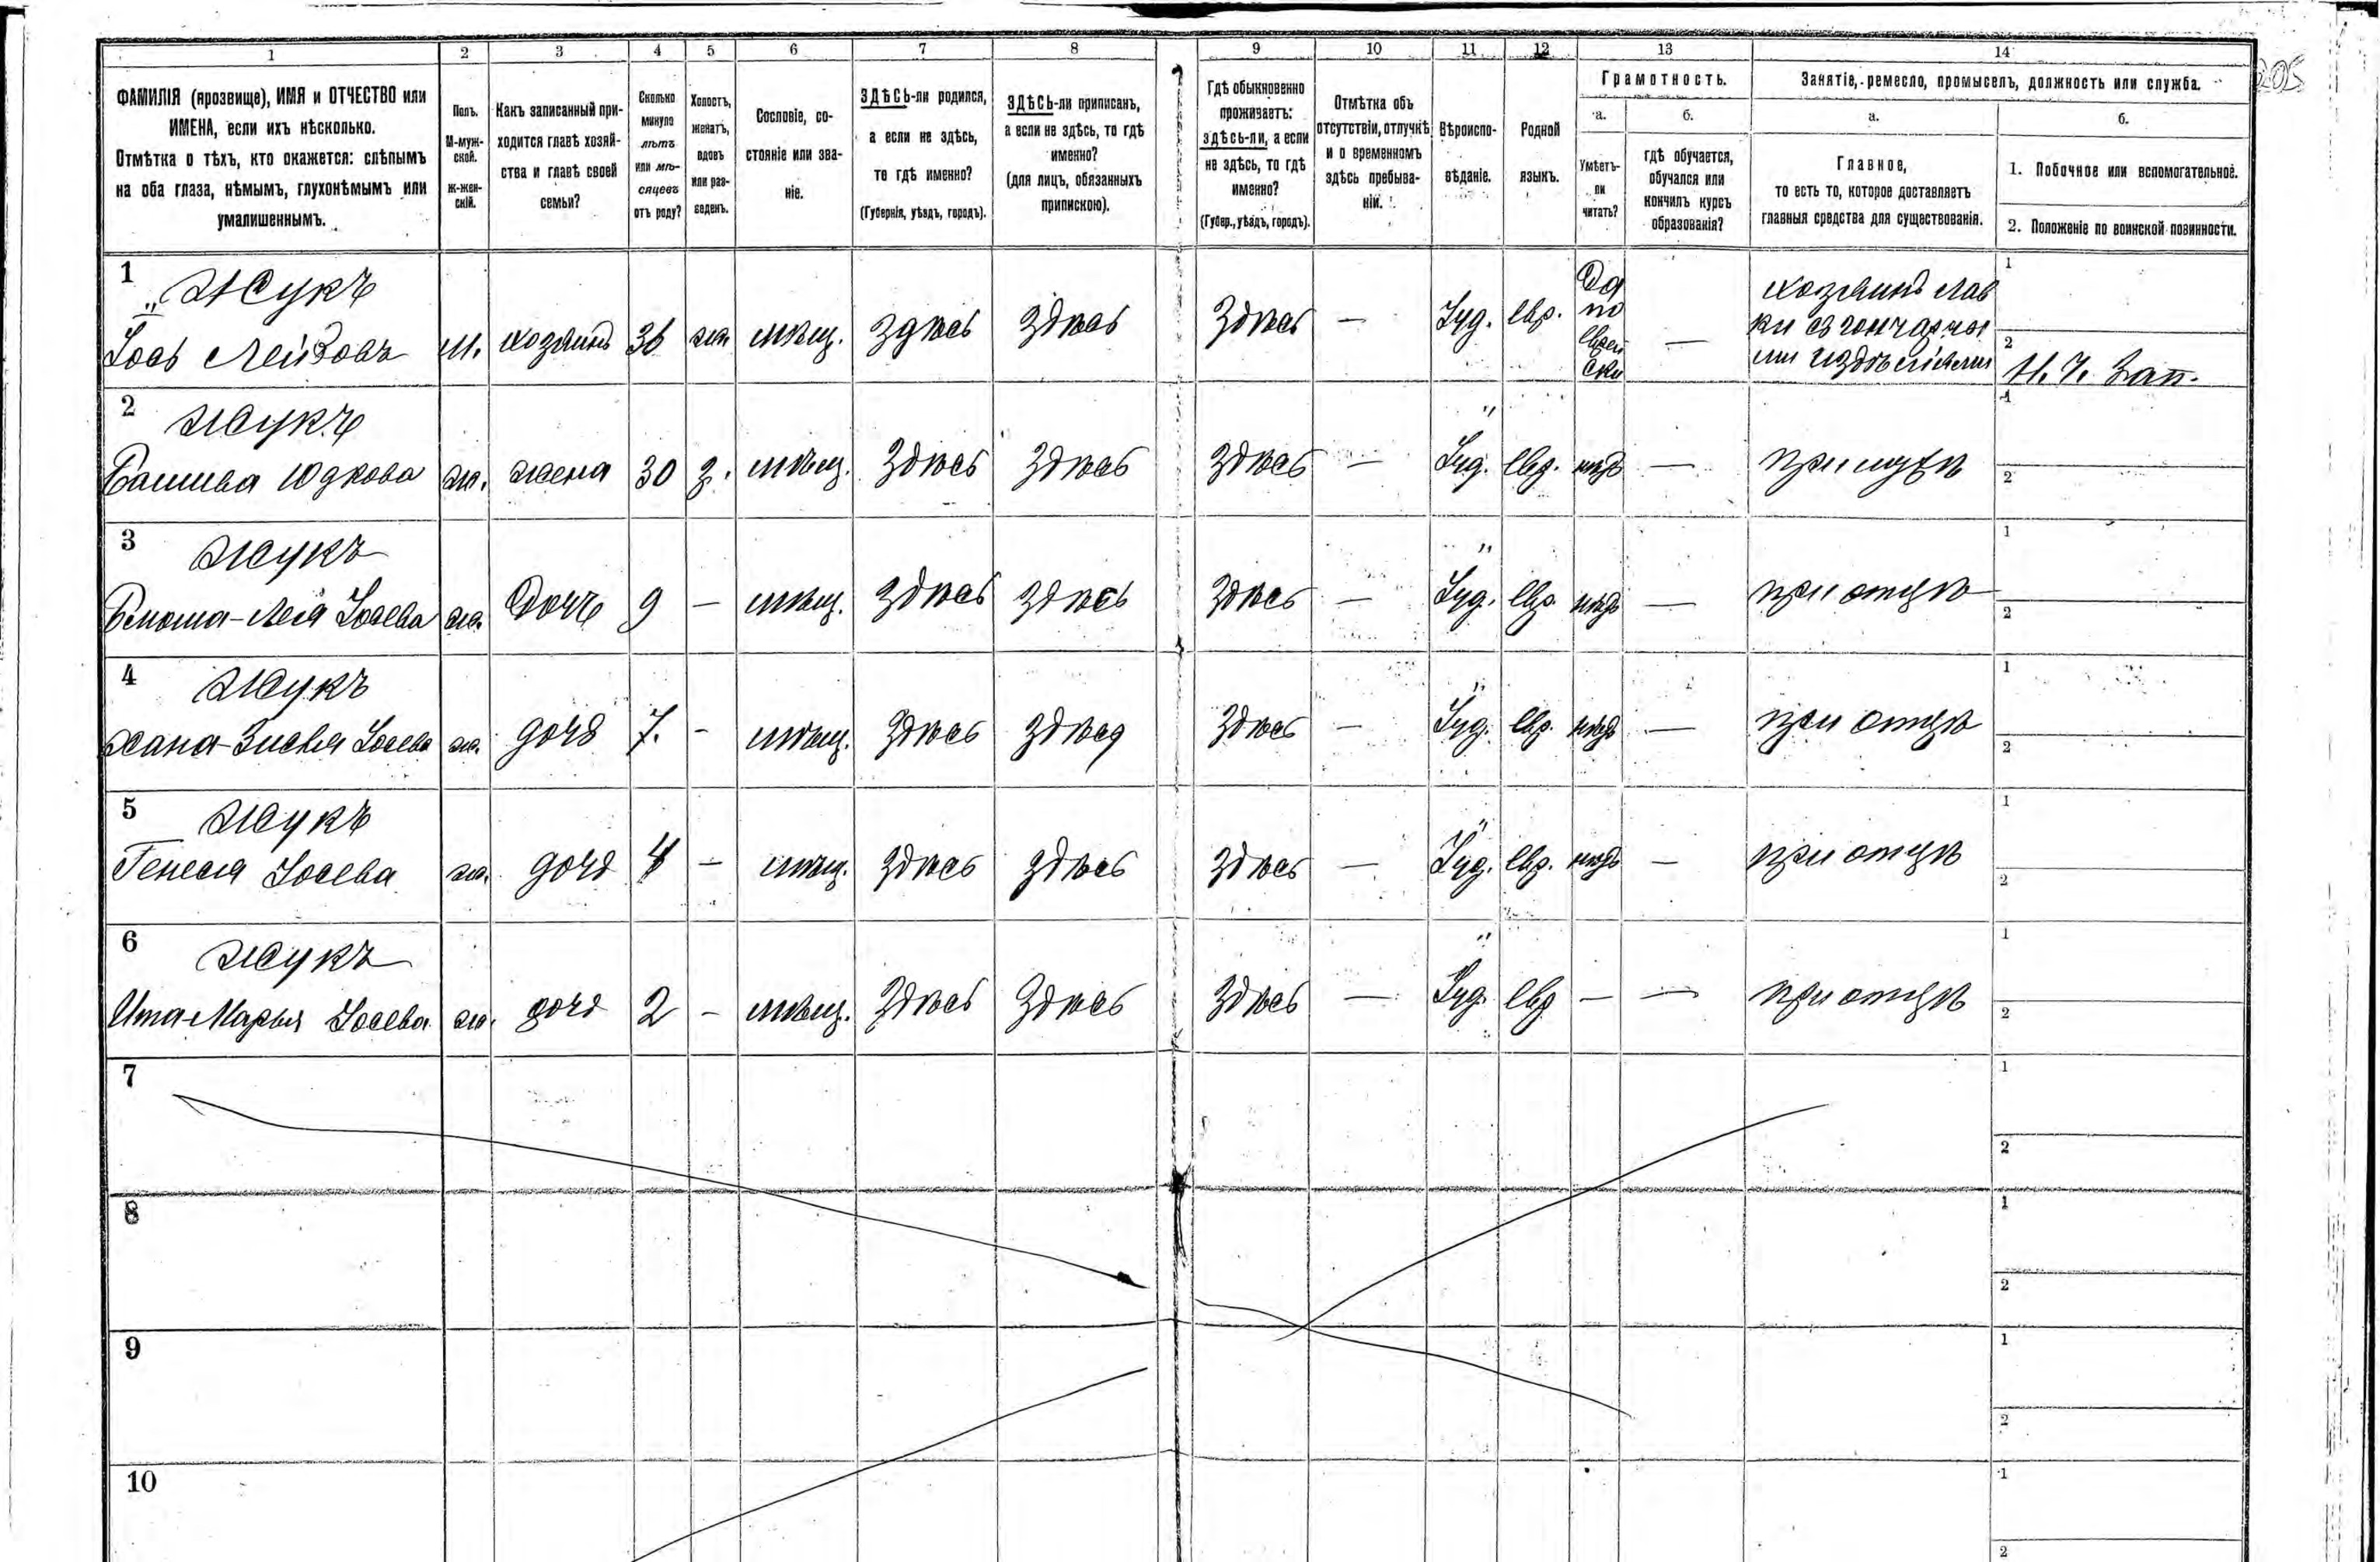 1 2 3 4 5 6 7 8 9 10 11 12 13 14
205
ФАМИЛІЯ (прозвище), ИМЯ и ОТЧЕСТВО или
ИМЕНА, если ихъ нѣсколько.
Отмѣтка о тѣхъ, кто окажется: слѣпымъ
на оба глаза, нѣмымъ, глухонѣмымъ или
умалишеннымъ.
Полъ.
М-муж-
ской.
Ж-жен-
скій.
Какъ записанный при-
ходится главѣ хозяй-
ства и главѣ своей
семьи?
Сколько
минуло
лѣтъ
или мѣ-
сяцевъ
отъ роду?
Холостъ,
женатъ,
вдовъ
или раз-
веденъ.
Сословіе, со-
стояніе или зва-
ніе.
ЗДѢСЬ-ли родился,
а если не здѣсь,
то гдѣ именно?
(Губернія, уѣздъ, городъ).
ЗДѢСЬ-ли приписанъ,
а если не здѣсь, то гдѣ
именно?
(для лицъ, обязанныхъ
припискою).
Гдѣ обыкновенно
проживаетъ:
здѣсь-ли, а если
не здѣсь, то гдѣ
именно?
(Губер., уѣздъ, городъ).
Отмѣтка объ
отсутствіи, отлучкѣ
и о временномъ
здѣсь пребыва-
ніи.
Вѣроиспо-
вѣданіе.
Родной
языкъ.
Грамотность.
а.
Умѣетъ-
ли
читать?
б.
гдѣ обучается,
обучался или
кончилъ курсъ
образованія?
Занятіе, ремесло, промыселъ, должность или служба.
а.
Главное,
то есть то, которое доставляетъ
главныя средства для существованія.
б.
1. Побочное или вспомогательное.
2. Положеніе по воинской повинности.
1
Жукъ
Іось Лейбовъ
м. хозяинъ 36 жен мѣщ. здѣсь здѣсь здѣсь — Іуд. евр.
Да
по
еврей
ски
—
хозяинъ лав
ки съ гончарны
ми издѣліями
1
2
Н. Ч. Зап.
2
Жукъ
Башива Юдкова ж. жена 30 з. мѣщ. здѣсь здѣсь здѣсь — Іуд. евр. нѣтъ — при мужѣ
1
2
3
Жукъ
Блюма-Лея Іосева ж. дочь 9 — мѣщ. здѣсь здѣсь здѣсь — Іуд. евр. нѣтъ — при отцѣ
1
2
4
Жукъ
Хана-Зисля Іосева ж. дочь 7. - мѣщ. здѣсь здѣсь здѣсь — Іуд. евр. нѣтъ — при отцѣ
1
2
5
Жукъ
Генеся Іосева ж. дочь 4 — мѣщ. здѣсь здѣсь здѣсь — Іуд. евр. нѣтъ — при отцѣ
1
2
6
Жукъ
Ита-Марья Іосева ж. дочь 2 - мѣщ. здѣсь здѣсь здѣсь — Іуд. евр — — при отцѣ
1
2
7
1
2
8
1
2
9
1
2
10
1
2